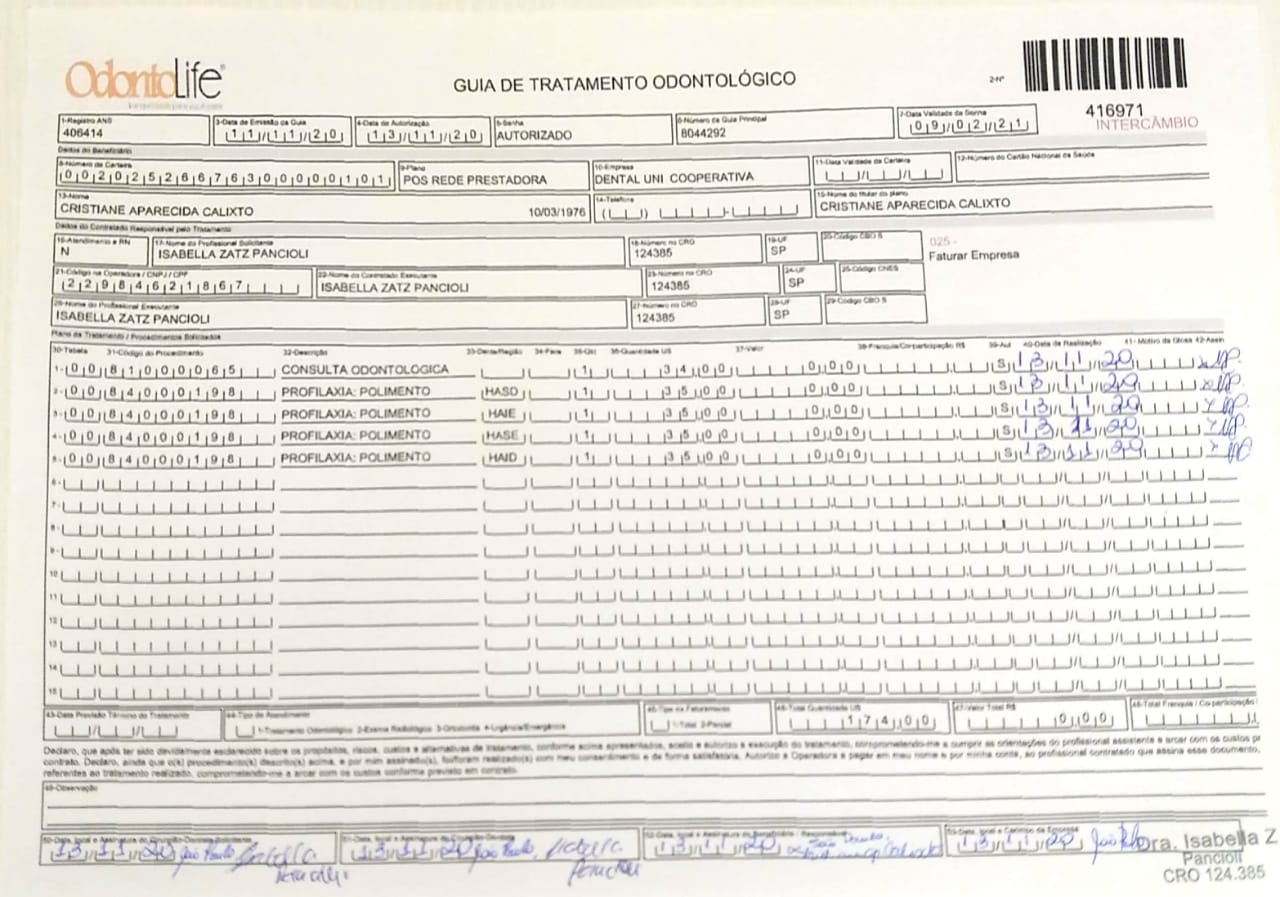 OdontoLife
GUIA DE TRATAMENTO ODONTOLÓGICO
2-Nº
416971
INTERCÂMBIO
1-Registro ANS 3-Data de Emissão da Guia 4-Data de Autorização 5-Senha 6-Número da Guia Principal 7-Data Validade da Senha
406414 11/11/20 13/11/20 AUTORIZADO 8044292 09/02/21
Dados do Beneficiário
8-Número da Carteira 9-Plano 10-Empresa 11-Data Validade da Carteira 12-Número do Cartão Nacional de Saúde
00202526676300000101 POS REDE PRESTADORA DENTAL UNI COOPERATIVA
13-Nome 14-Telefone 15-Nome do titular do plano
CRISTIANE APARECIDA CALIXTO 10/03/1976 CRISTIANE APARECIDA CALIXTO
Dados do Contratado Responsável pelo Tratamento
16-Atendimento a RN 17-Nome do Profissional Solicitante 18-Número no CRO 19-UF 20-Código CBO S
N ISABELLA ZATZ PANCIOLI 124385 SP
025 -
Faturar Empresa
21-Código na Operadora / CNPJ / CPF 22-Nome do Contratado Executante 23-Número no CRO 24-UF 25-Código CNES
22984621867 ISABELLA ZATZ PANCIOLI 124385 SP
26-Nome do Profissional Executante 27-Número no CRO 28-UF 29-Código CBO S
ISABELLA ZATZ PANCIOLI 124385 SP
Plano de Tratamento / Procedimentos Solicitados
30-Tabela 31-Código do Procedimento 32-Descrição 33-Dente/Região 34-Face 35-Qtd 36-Quantidade US 37-Valor 38-Franquia/Co-participação R$ 39-Aut 40-Data de Realização 41-Motivo da Glosa 42-Assin
1- 00 81000065 CONSULTA ODONTOLOGICA 1 34,00 0,00 S 13/11/20
2- 00 84000198 PROFILAXIA: POLIMENTO HASD 1 35,00 0,00 S 13/11/20
3- 00 84000198 PROFILAXIA: POLIMENTO HAIE 1 35,00 0,00 S 13/11/20
4- 00 84000198 PROFILAXIA: POLIMENTO HASE 1 35,00 0,00 S 13/11/20
5- 00 84000198 PROFILAXIA: POLIMENTO HAID 1 35,00 0,00 S 13/11/20
6-
7-
8-
9-
10
11
12
13
14
15
43-Data Previsão Término do Tratamento 44-Tipo de Atendimento 45-Tipo de Faturamento 46-Total Quantidade US 47-Valor Total R$ 48-Total Franquia / Co-participação
1-Tratamento Odontológico 2-Exame Radiológico 3-Ortodontia 4-Urgência/Emergência 1-Total 2-Parcial 174,00 0,00
Declaro, que após ter sido devidamente esclarecido sobre os propósitos, riscos, custos e alternativas de tratamento, conforme acima apresentados, aceito e autorizo a execução do tratamento, comprometendo-me a cumprir as orientações do profissional assistente e arcar com os custos
contrato. Declaro, ainda que o(s) procedimento(s) descrito(s) acima, e por mim assinado(s), foi/foram realizado(s) com meu consentimento e de forma satisfatória. Autorizo a Operadora a pagar em meu nome e por minha conta, ao profissional contratado que assina esse documento,
referentes ao tratamento realizado, comprometendo-me a arcar com os custos conforme previsto em contrato.
49-Observação
50-Data, local e Assinatura do Cirurgião-Dentista Solicitante 51-Data, local e Assinatura do Cirurgião-Dentista 52-Data, local e Assinatura do Beneficiário / Responsável 53-Data, local e Carimbo da Empresa
13/11/20 São Paulo 13/11/20 São Paulo, 13/11/20 13/11/20 São Paulo
Dra. Isabella Z
Pancioli
CRO 124.385